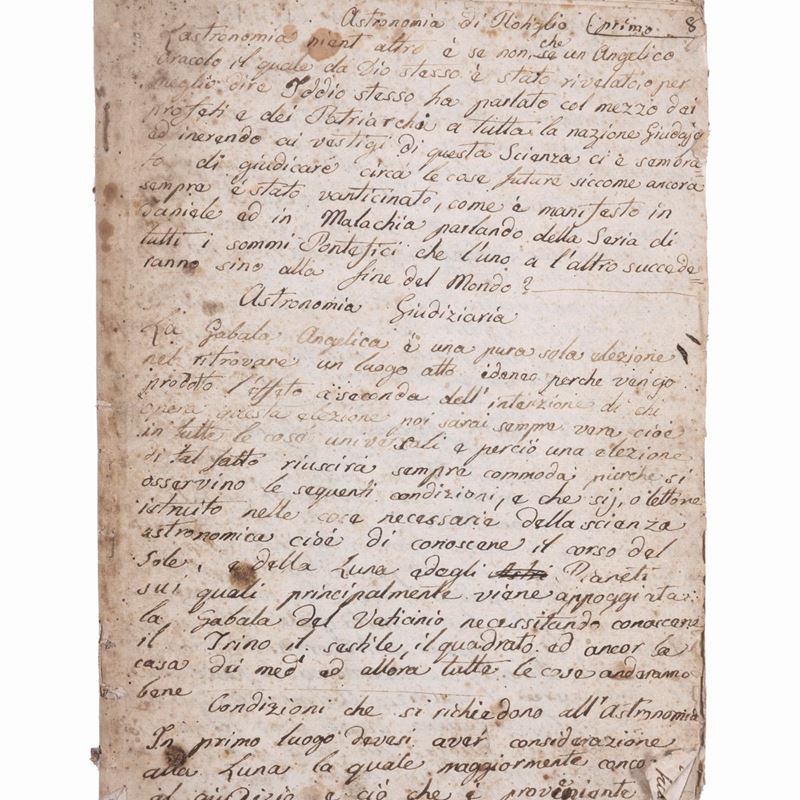 Astronomia di (primo. 8
Lastronomia nient altro è se non, che se un Angelico
oracolo il quale da Dio stesso è stato rivelato, o per
meglio dire Iddio stesso ha parlato col mezzo dei
profeti e dei Patriarchi a tutta la nazione Giudaja
ed inerendo ai vestigi di questa Scienza ci è sembra=
to di giudicare circa le cose future siccome ancora
sempre è stato vanticinato, come è manifesto in
Daniele ed in Malachia parlando della Seria di
tutti i sommi Pontefici che l'uno a l'altro succede=
ranno sino alla fine del Mondo?
Astronomia Giudiziaria
La Gabala Angelica è una pura sola elezione
nel ritrovare un luogo atto idoneo perche vengo
prodoto l'effeto a seconda dell'intenzione di chi
opera questa elezione noi sarai sempre vera cioè
in tutte le cose universali e perciò una elezione
di tal fatto riuscirà sempre commoda, pierche si
osservino le sequenti condizioni, e che sij, o lettore
istruito nelle cose necessarie della scienza
astronomica cioè di conoscere il corso del
Sole, e della Luna edegli Astri Pianeti
sui quali principalmente viene appoggiata
la Gabala del Vaticinio necessitando conoscere
il Trino il sestile, il quadrato. ed ancor la
casa dei med.i ed allora tutte le cose anderanno
bene
Condizioni che si richiedono all'Astronomia
In primo luogo devesi aver considerazione
alla Luna la quale maggiormente conco
al giudizio e ciò che è proveniente